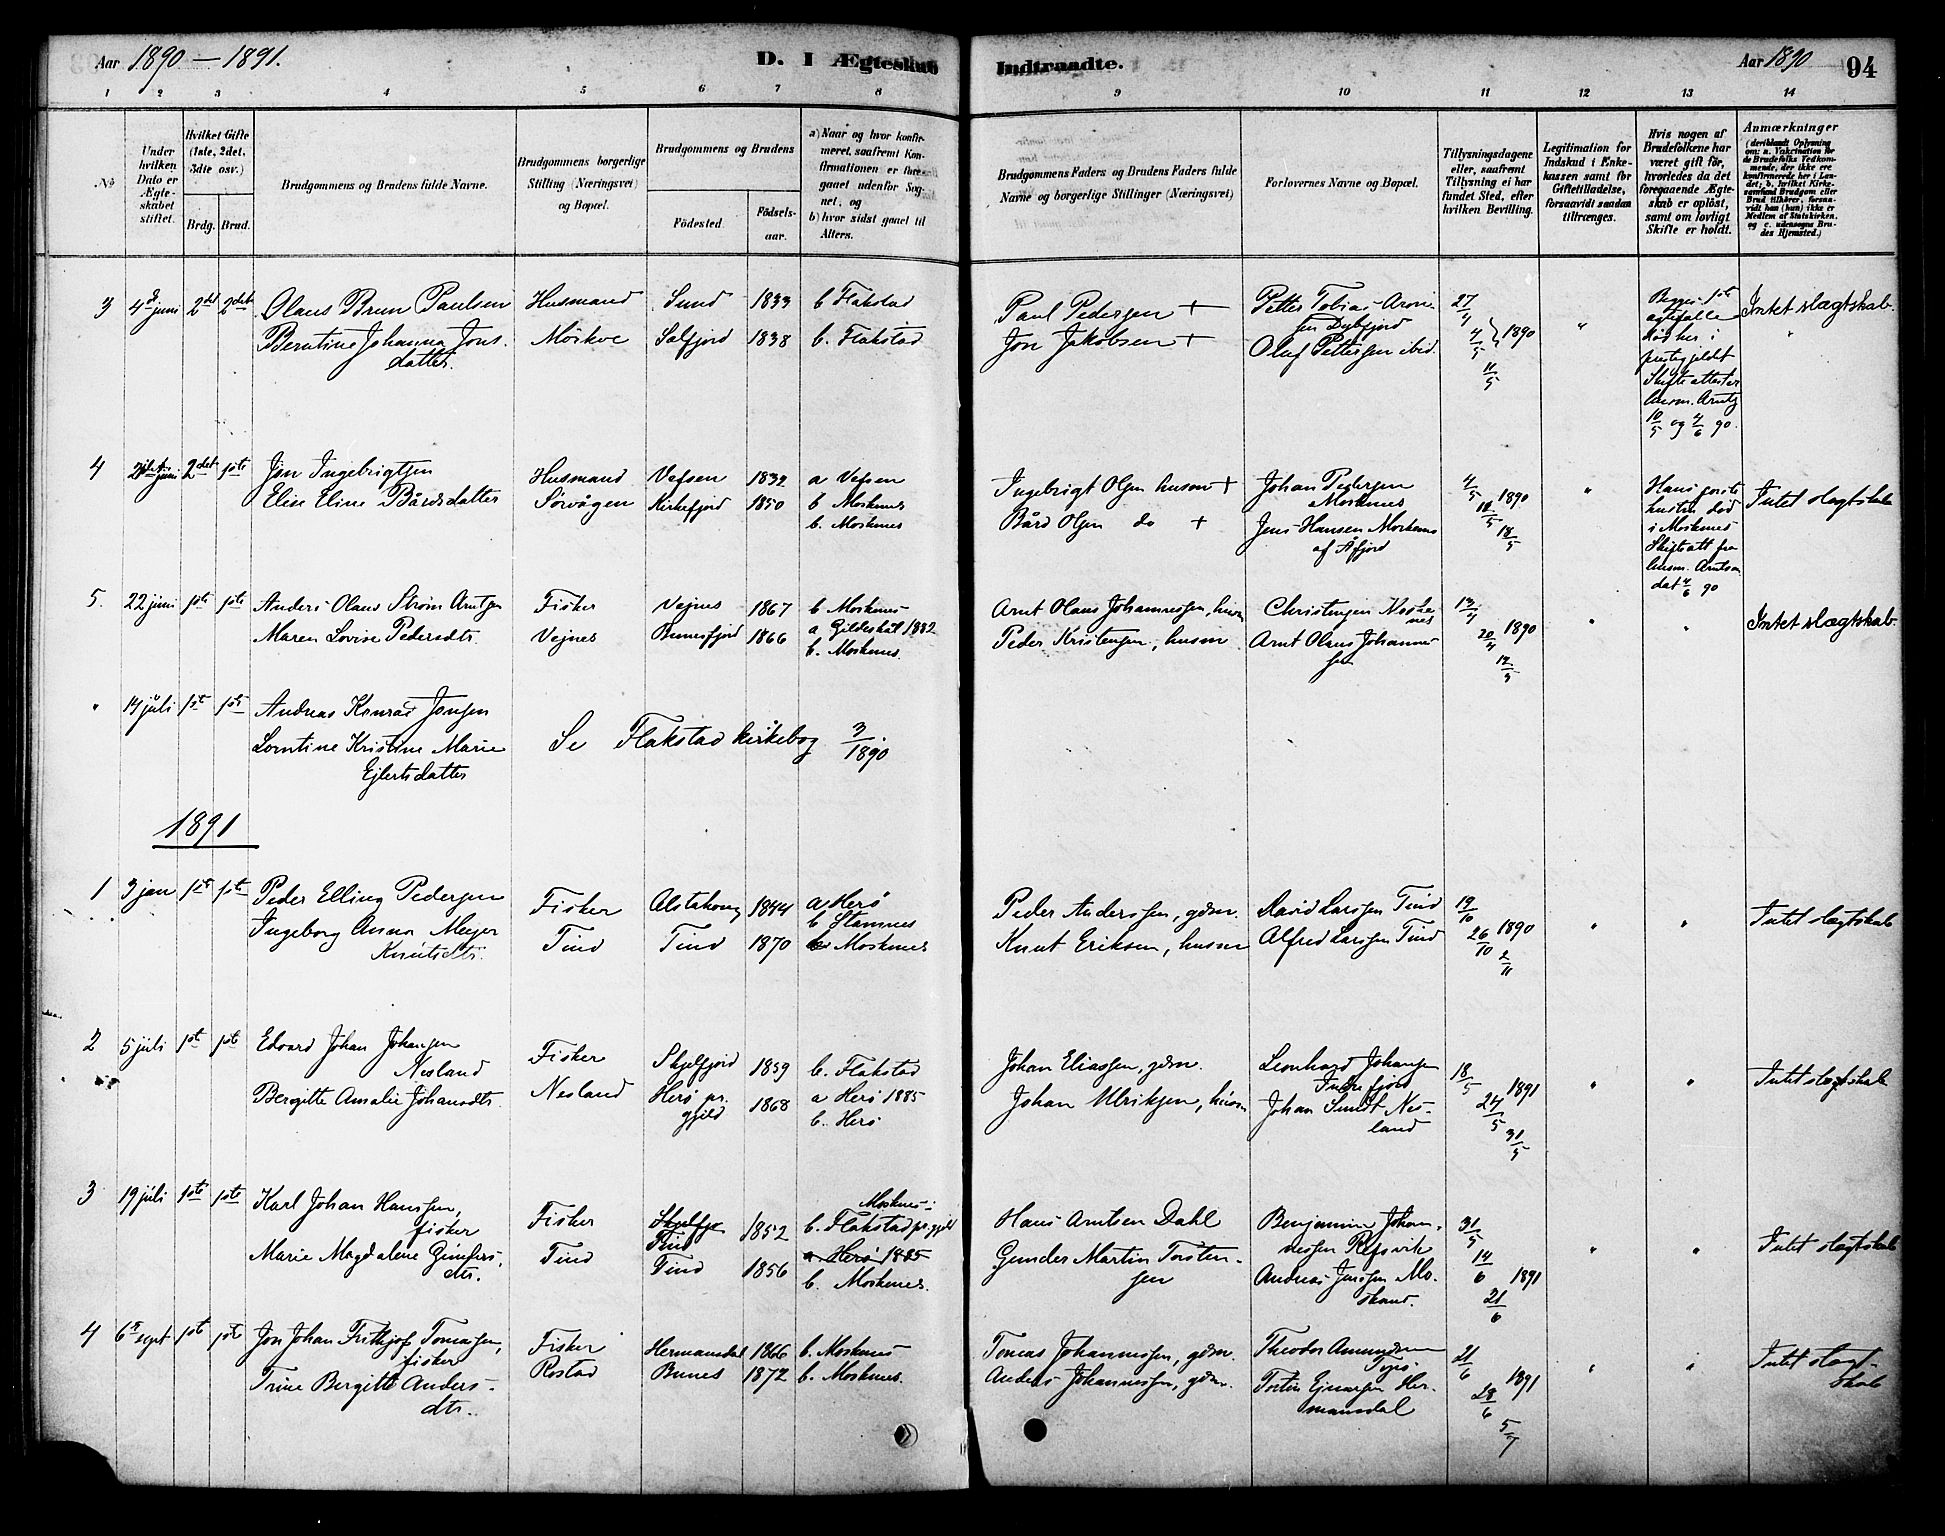 Aar 1890 — 1891.
D. I Ægteskab
Indtraadte.
Aar 1890
94
1 2 3 4 5 6 7 8
9 10 11 12 13 14
No
Under hvilken Dato er Ægteskabet stiftet.
Hvilket Gifte (1ste, 2det, 3dte osv.)
Brdg. Brud.
Brudgommens og Brudens fulde Navne.
Brudgommens borgerlige Stilling (Næringsvei) og Bopæl.
Brudgommens og Brudens
Födested.
Födsels-aar.
a) Naar og hvor konfirmeret, saafremt Konfirmationen er foregaaet udenfor Sognet, og
b) hvor sidst gaaet til Alters.
Brudgommens Faders og Brudens Faders fulde Navne og borgerlige Stillinger (Næringsvei)
Forlovernes Navne og Bopæl.
Tillysningsdagene eller, saafremt Tillysning ei har fundet Sted, efter hvilken Bevilling.
Legitimation for Indskud i Enkekassen samt for Giftetilladelse, forsaavidt saadan tiltrænges.
Hvis nogen af Brudefolkene har været gift för, hvorledes da det foregaaende Ægteskab er oplöst, samt om lovligt Skifte er holdt.
Anmærkninger
(deriblandt Oplysning om: a. Vakcination for de Brudefolks Vedkommende, der ikke ere konfirmerede her i Landet; b. hvilket Kirkesamfund Brudgom eller Brud tilhörer, forsaavidt han (hun) ikke er Medlem af Statskirken, og c. udensogns Brudes Hjemsted.)
3 4d juni 2det 2det Olaus Brun Paulsen Husmand Sund 1833 b Flakstad Paul Pedersen + Petter Tobias Aron- 27/4 Intet slægtskab.
Berntine Johanna Jons- Mörkve Selfjord 1838 b. Flakstad Jon Jakobsen + sen Dybfjord 4/5 1890 "
datter. Oluf Pettersen ibid. 11/5
Begges 1ste
ægtefælle
död her i
prestegjeldet
Skifteattester
lensm. Arntz
10/5 og 4/6 90.
4 juni 2det 1ste Jon Ingebrigtsen Husmand Vefsen 1832 a Vefsen Ingebrigt Olsen husm + Johan Pedersen 4/5 1890
b Moskenes Moskenes 11/5
Elen Eline Bårdsdatter Sörvågen Kirkefjord 1850 b. Moskenes Bård Olsen do + Jens Hansen Moskenes 18/5 Intet slægtskab
af Åfjord
Hans förste
hustru död
i Moskenes
Skifteatt fra
lensm. Arntsen
dat 4/6 90
5. 22 juni 1ste 1ste Anders Olaus Ström Arntsen Fisker Vejnes 1867 b Moskenes Arnt Olaus Johannessen, husm 13/4 Intet slægtskab.
Maren Lovise Pedersdtr Vejnes Bunesfjord 1866 a Gildeskål 1882 Peder Kristensen, husm Arnt Olaus Johannes- 20/4 1890
b. Moskenes. sen
" 14 juli 1ste 1ste Andreas Konrad Jonsen
Lorntine Kristine Marie Se Flakstad kirkebog 3/1890
Ejlertsdatter
1891
1 3 jan 1ste 1ste Peder Elling Pedersen Fisker Alstahoug 1844 a Herö Peder Anderssen, gdm. David Larssen Tind 19/10 Intet slægtskab
b Stamnes
Ingeborg Anna Meyer Tind Tind 1870 b Moskenes Knut Eriksen, husm Alfred Larssen Tind 26/10 1890
Knutsdtr. 2/11
2 5 juli 1ste 1ste Edvard Johan Johansen Fisker Skjelfjord 1859 b. Flakstad Johan Eliassen, gdm. Leonhard Johansen 18/5 Intet slægtskab
Nesland Indrefjord
Bergitte Amalie Johansdtr. Nesland Herö pr. 1868 a Herö 1885 Johan Ulriksen, husm Johan Smidt Nes- 24/5 1891
gjeld b. Herö land 31/5
3 19 juli 1ste 1ste Karl Johan Hanssen, Fisker Skjelfjo Tind 1852 Moskenes b. Flakstad pr.gjeld Hans Arntsen Dahl Benjamin Johan- 31/5
fisker nessen Refsvik Intet slægtskab
Marie Magdalene Gunders- Tind Tind 1856 a Herö 1885 Gunder Martin Torsten- Andreas Jenssen Mo- 14/6 1891
dtr. b. Moskenes. sen 21/6
4 6te sept 1ste 1ste Jon Johan Frithjof Tomassen, Fisker Hermansdal 1866 b. Moskenes Tomas Johannessen, gdm. Theodor Amundsen 21/6 Intet slægt-
fisker skab
Trine Bergitte Anders- Rostad Bunes 1872 b. Moskenes. Anders Johannessen, gdm. Her- 28/6 1891
dtr. mansdal 5/7